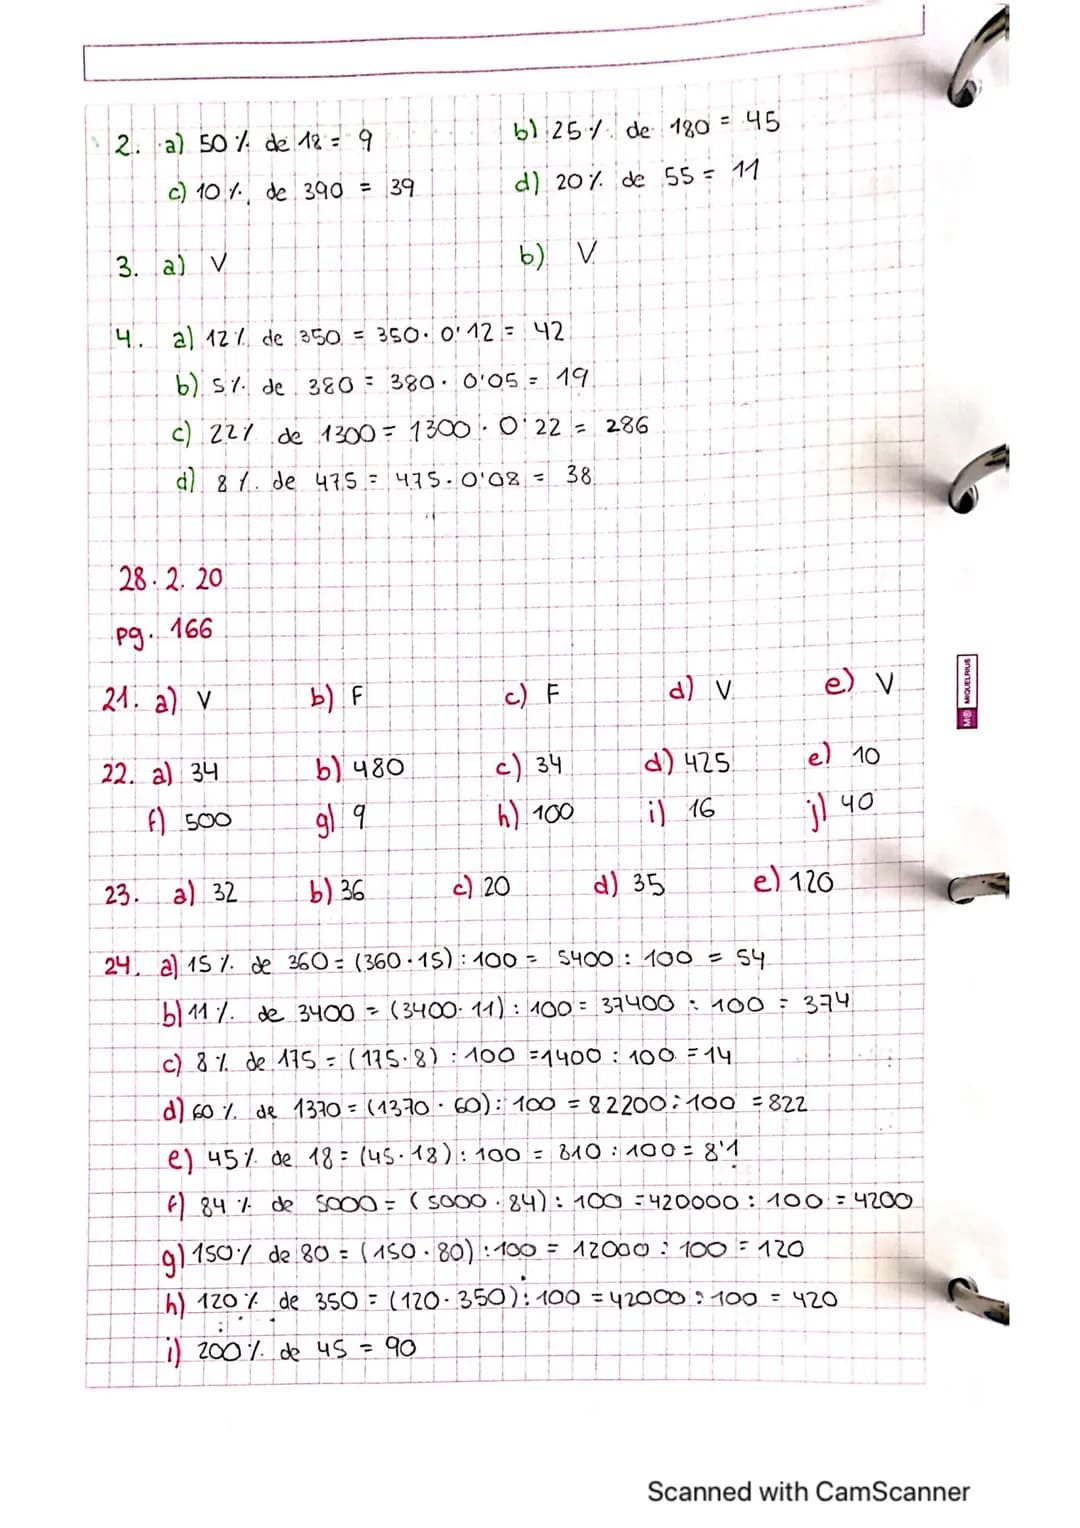 2. a) 50 % de 18 = 9 b) 25 % de 180 = 45
c) 10 % de 390 = 39 d) 20 % de 55 = 11
3. a) V b) V
4. a) 12 % de 350 = 350 · 0'12 = 42
b) 5 % de 380 = 380 · 0'05 = 19
c) 22 % de 1300 = 1300 · 0'22 = 286
d) 8 % de 475 = 475 · 0'08 = 38
28. 2. 20
pg. 166
21. a) V b) F c) F d) V e) V
M® MIQUELRIUS
22. a) 34 b) 480 c) 34 d) 425 e) 10
f) 500 g) 9 h) 100 i) 16 j) 40
23. a) 32 b) 36 c) 20 d) 35 e) 120
24. a) 15 % de 360 = (360 · 15) : 100 = 5400 : 100 = 54
b) 11 % de 3400 = (3400 · 11) : 100 = 37400 : 100 = 374
c) 8 % de 175 = (175 · 8) : 100 = 1400 : 100 = 14
d) 60 % de 1370 = (1370 · 60) : 100 = 82200 : 100 = 822
e) 45 % de 18 = (45 · 18) : 100 = 810 : 100 = 8'1
f) 84 % de 5000 = (5000 · 84) : 100 = 420000 : 100 = 4200
g) 150 % de 80 = (150 · 80) : 100 = 12000 : 100 = 120
h) 120 % de 350 = (120 · 350) : 100 = 42000 : 100 = 420
i) 200 % de 45 = 90
Scanned with CamScanner